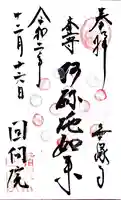 奉拝
本尊 阿弥陀如来
令和二年
十二月十六日
回向院